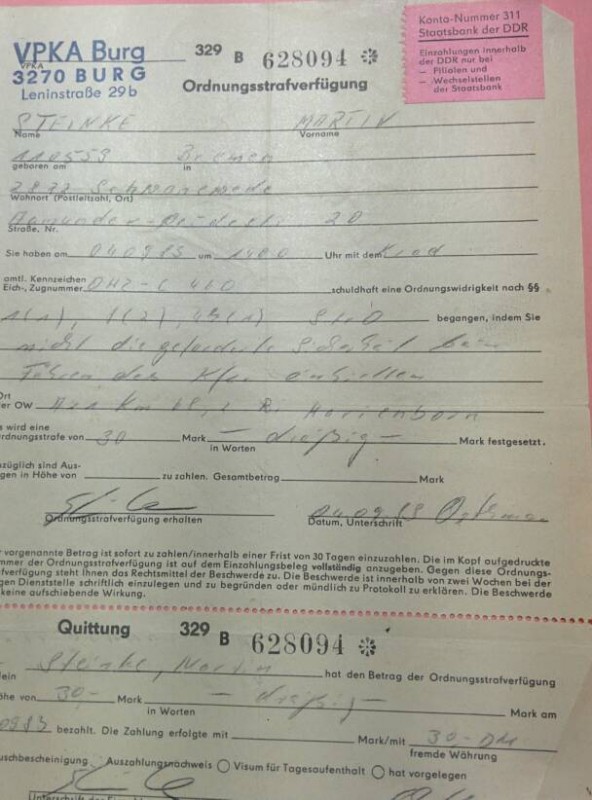 VPKA Burg
VPKA
3270 BURG
Leninstraße 29b
329 B 628094
Ordnungsstrafverfügung
Konto-Nummer 311
Staatsbank der DDR
Einzahlungen innerhalb
der DDR nur bei
— Filialen und
— Wechselstellen
der Staatsbank
STEINKE MARTIN
Name Vorname
110559 Bremen
geboren am in
2872
Wohnort (Postleitzahl, Ort)
20
Straße, Nr.
Sie haben am 040983 um 1400 Uhr mit dem
amtl. Kennzeichen
Eich-, Zugnummer OHZ-C 410 schuldhaft eine Ordnungswidrigkeit nach §§
1(1), 1(2), StVO begangen, indem Sie
nicht die geforderte Sicherheit beim
Führen des Kfz einhielten
Ort
er OW km R. Marienborn
s wird eine
rdnungsstrafe von 30 Mark — dreißig — Mark festgesetzt.
in Worten
züglich sind Aus-
gen in Höhe von zu zahlen. Gesamtbetrag Mark
04.09.83
Ordnungsstrafverfügung erhalten Datum, Unterschrift
r vorgenannte Betrag ist sofort zu zahlen/innerhalb einer Frist von 30 Tagen einzuzahlen. Die im Kopf aufgedruckte
ummer der Ordnungsstrafverfügung ist auf dem Einzahlungsbeleg vollständig anzugeben. Gegen diese Ordnungs-
afverfügung steht Ihnen das Rechtsmittel der Beschwerde zu. Die Beschwerde ist innerhalb von zwei Wochen bei der
gen Dienststelle schriftlich einzulegen und zu begründen oder mündlich zu Protokoll zu erklären. Die Beschwerde
keine aufschiebende Wirkung.
Quittung 329 B 628094
Steinke, Martin hat den Betrag der Ordnungsstrafverfügung
öhe von 30,- Mark — dreißig — Mark am
in Worten
0983 bezahlt. Die Zahlung erfolgte mit Mark/mit 30,- DM
fremde Währung
uschbescheinigung Auszahlungsnachweis Visum für Tagesaufenthalt hat vorgelegen